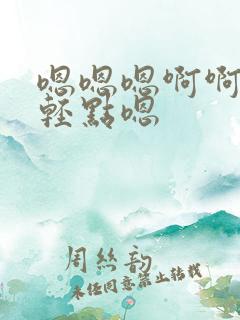 嗯嗯嗯啊啊
輕點嗯
周丝韵
未经同意禁止转载